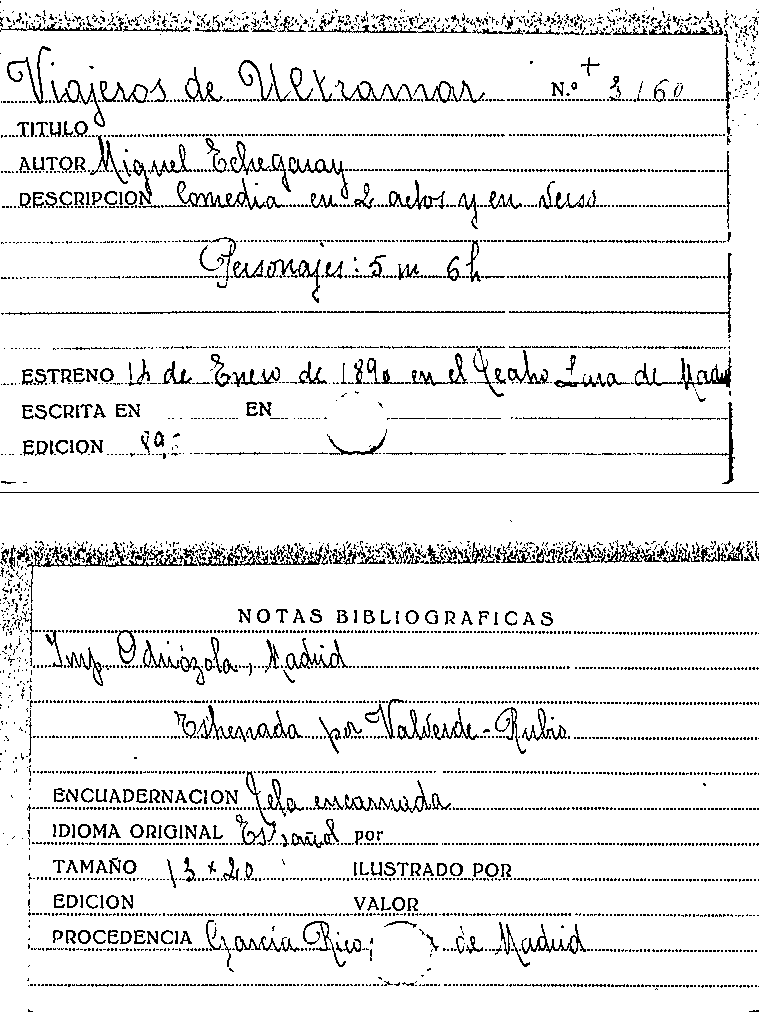 Viajeros de Ultramar N.º + 3160
TITULO
AUTOR Miguel Echegaray
DESCRIPCION Comedia en 2 actos y en verso
Personajes: 5 m 6 h
ESTRENO de Enero de 1890 en el Teatro Lara de
ESCRITA EN EN
EDICION
NOTAS BIBLIOGRAFICAS
Imp Odriózola, Madrid
Estrenada por Valverde-Rubio
ENCUADERNACION Tela encarnada
IDIOMA ORIGINAL Español por
TAMAÑO 13 x 20 ILUSTRADO POR
EDICION VALOR
PROCEDENCIA García Rico, de Madrid